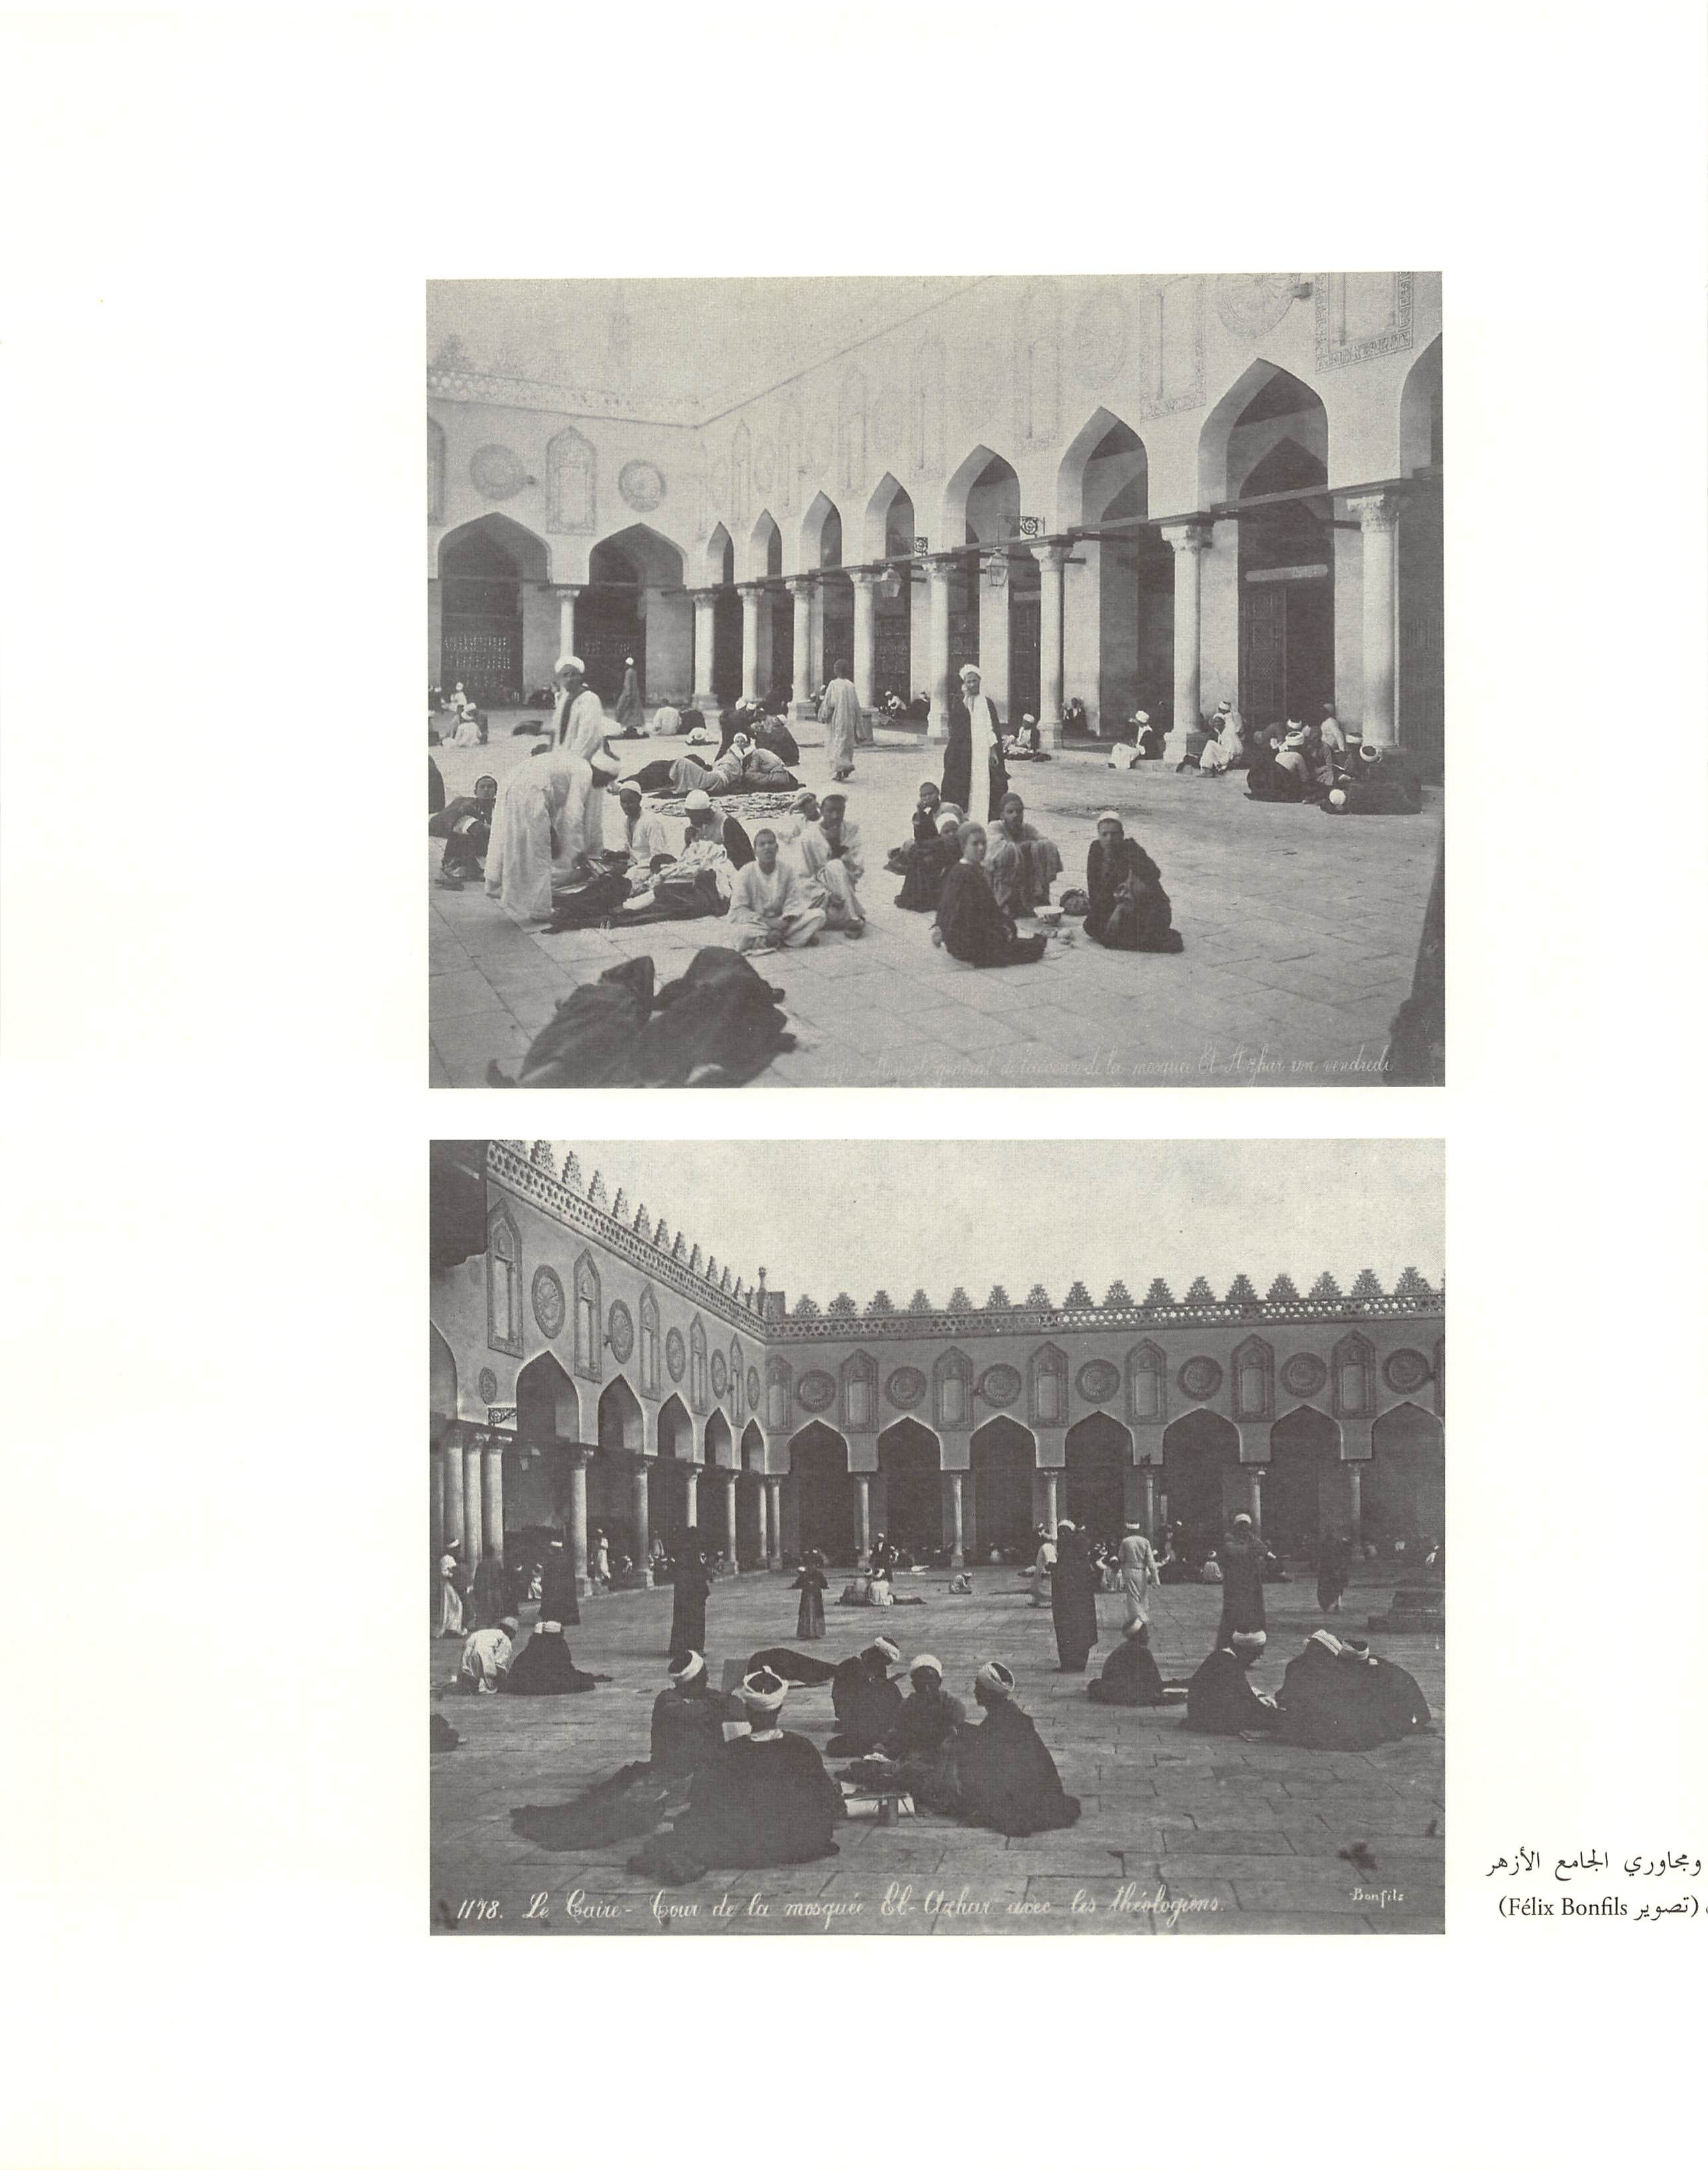 de la mosquée El-Azhar un vendredi
1178. Le Caire - Cour de la mosquée El-Azhar avec les théologiens.
Bonfils
ومجاوري الجامع الأزهر
(تصوير Félix Bonfils)